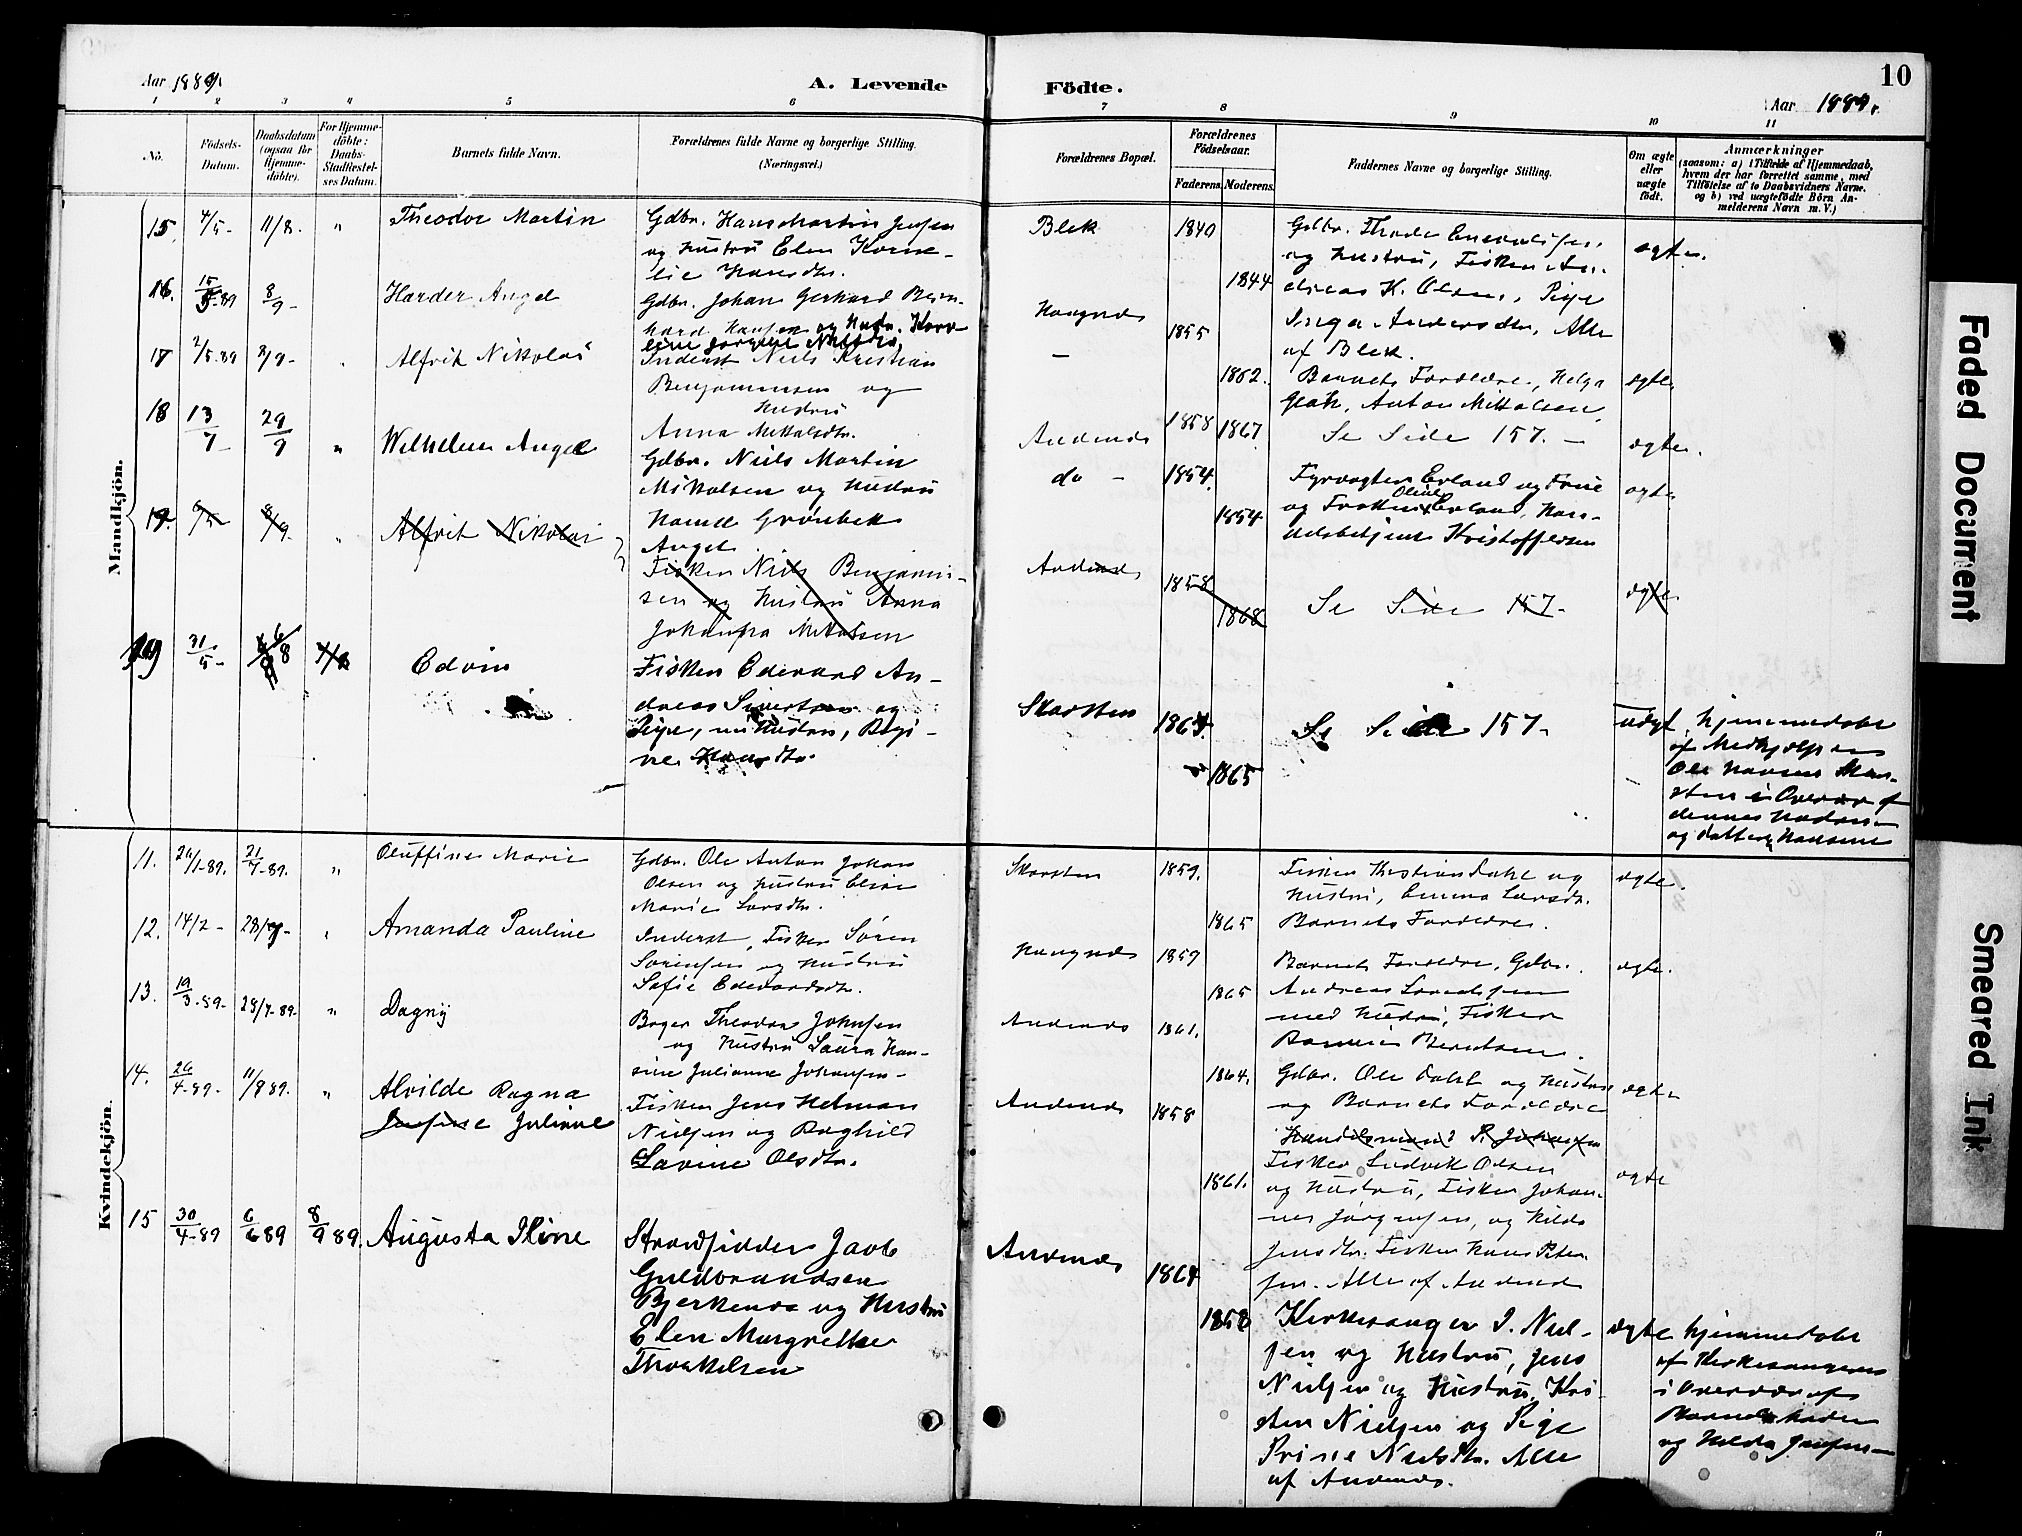 10
Aar 1889.
A. Levende
Födte.
Aar 1889.
1 2 3 4 5 6 7 8 9 10 11
No.
Födsels-
Datum.
Daabsdatum
(ogsaa for
Hjemme-
döbte).
For Hjemme-
döbte:
Daabs-
Stadfæstel-
ses Datum.
Barnets fulde Navn.
Forældrenes fulde Navne og borgerlige Stilling.
(Næringsvei.)
Forældrenes Bopæl.
Forældrenes
Födselsaar.
Faderens. Moderens.
Faddernes Navne og borgerlige Stilling.
Om ægte
eller
uægte
födt.
Anmærkninger
(saasom: a) i Tilfælde af Hjemmedaab,
hvem der har forrettet samme, med
Tilföielse af to Daabsvidners Navne.
og b) ved uægtefödte Börn An-
melderens Navn m. V.)
Mandkjön.
15. 4/5- 11/8. " Theodor Martin
Gdbr. Hans Martin Jensen
og Hustru Elen Korne-
lie Hansdtr.
Blek 1840
1844
Gdbr. Thode
og Hustru, Fisker An-
dreas K. Olsen, Pige
Inga Andersdtr. Alle
af Blek.
ægte.
16. 15/5-89 8/9- Harder Angel
Gdbr. Johan Gerhard Bern-
hard Hansen og Hustr.
Haugnes 1855
1862.
Barnets Forældre, Helga
Anton Mikkalsen
ægte
17 2/5-89 8/9- Alfrit Nikolai
Inderst Niels Kristian
Benjaminsen og
Hustru
Anna Mikalsdtr.
— 1858 1867.
Se Side 157. —
ægte.
18 13/7- 29/9 " Wilhelm Angel
Gdbr. Niels Martin
Mikalsen og Hustru
Hansd Grönbek
Angel.
Andenes
do — 1854.
1854
Fyrvogter Erland og Frue
og Frøken Oline Erland, Han-
delsbetjent Kristoffersen
ægte
19. 8/9- " Alfrit Nikolai
Fisker Niels Benjamin-
sen og Hustru Anna
Johanna Mikalsen
Andenes 1858
1868
Se Side 157-
ægte.
19 31/5- Edvin
Fisker Edevard An-
dreas Sivertsen og
Pige, nu Hustru, Regi-
ne Hansdtr.
Skarsten 1864.
1865
Se Side 157-
uægt.
hjemmedøbt
af Medhjelperen
Ole Hansen Skar-
sten i Overvær af
dennes Hustru
og datter Hansine
Kvindekjön.
11. 26/1-89. 21/4-89. " Oluffine Marie
Gdbr. Ole Anton Johan
Olsen og Hustru Eline
Marie Larsdtr.
Skarsten 1859.
1865
Fisker Kristian Dahl og
Hustru, Emma Larsdtr.
Barnets Forældre.
ægte.
12. 14/2- Amanda Pauline
Inderst, Fisker Søren
Sørensen og Hustru
Sofie Edevardsdtr.
Haugnes 1859
1865
Barnets Forældre, Gdbr.
Andreas
med Hustru, Fisker
Berntsen.
ægte.
13. 19/3-89- 28/7-89- " Dagny
Bager Theodor Johnsen
og Hustru Laura Han-
sine Julianne Johansen-
Andenes 1861.
1864.
Gdbr. Ole Dahl og Hustru
og Barnets Forældre
ægte
14. 26/4-89- 11/8 89. " Alvilde Ragna
Josefine Juliane
Fisker Jens Helman
Nielsen og Raghild
Lavine Olsdtr.
Andenes 1858
1861.
Handelsmand P. Johansen
Fisker Ludvik Olsen
og Hustru, Fisker Johan-
nes Jørgensen, og Hilda
Jensdtr. Fisker Hans Peter-
sen. Alle af Andenes
ægte
15 30/4-89 6/6 89 8/9 89. Augusta Line
Strandsidder Jacob
Guldbrandsen
Bjerkenes og Hustru
Elen Margrethe
Thorkelsen
Andenes 1864
1858
Kirkesanger I. Niel-
sen og Hustru, Jens
Nielsen og Hustru, Kri-
sten Nielsen og Pige
Prine Nielsdtr. Alle
af Andenes.
ægte
hjemmedøbt
af Kirkesangeren
i Overvær af
Barnets Fader
og Hilda Jensen
Faded Document
Smeared Ink